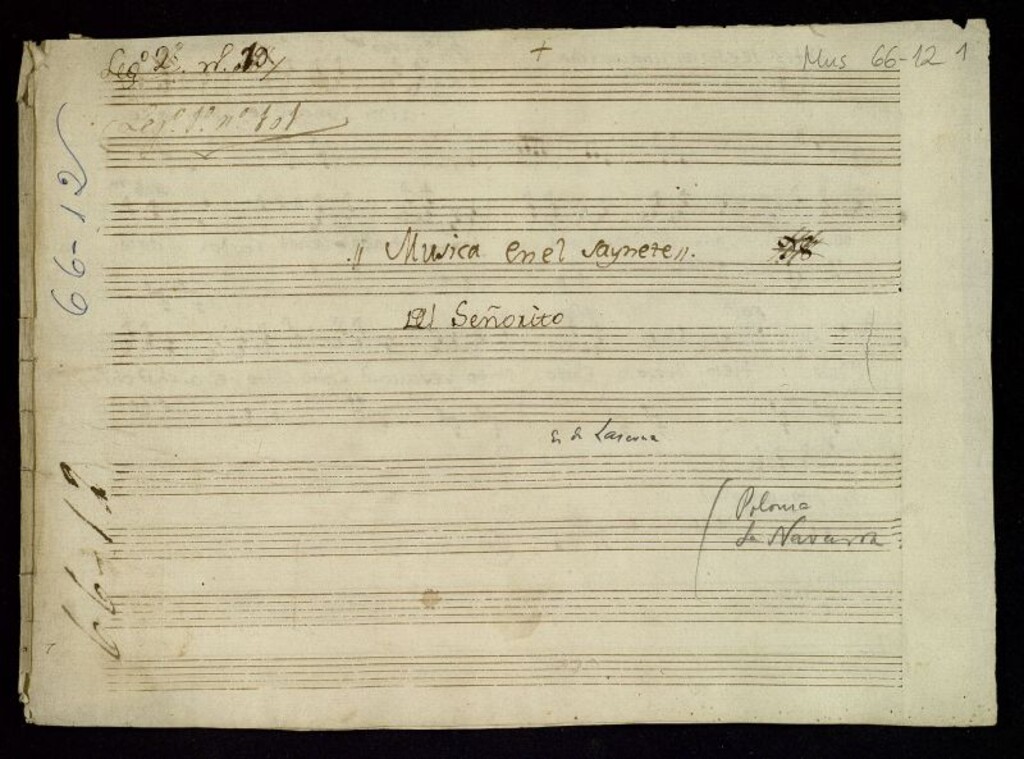 Leg.º 2.º n.
Mus 66-12 1
Leg.º 1.º n.º 101
66-12
Musica en el saynete
El Señorito
es de Laserna
Polonia
La Navarra
66-12